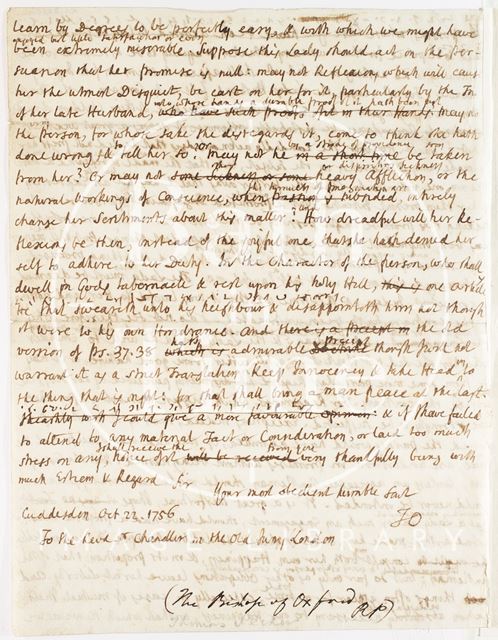 learn by Degrees to be perfectly easy with which we might have
been extremely miserable. Suppose this Lady should act on the Per-
suasion that her promise is null: may not Reflexions, which will cause
her the utmost Disquiet, be cast on her for it, particularly by the
of her late Husband, who have such proofs in their Hands? may not
the Person, for whose sake she disregards it, come to think she hath
done wrong to tell her so? or may not he in a short time be taken
from her? Or may not some Sickness or some heavy Affliction, or the
natural workings of Conscience, when Passion is subsided, intirely
change her Sentiments about this matter? How dreadful will her Re-
flexions be then, instead of the joyful one, that she hath denied her
self to adhere to her Duty. In the Character of the person, who shall
dwell in Gods tabernacle & rest upon his holy Hill, this is one article
He that sweareth unto his neighbour & disappointeth him not though
it were to his own Hindrance. And there is a precept in the old
version of Ps. 37.38 which is admirable though just not
warrant it as a strict Translation. Keep Innocency & take Heed to
the thing that is right: for that shall bring a man peace at the last.
I heartily wish I could give a more favourable opinion: & if I have failed
to attend to any material Fact or Consideration, or laid too much
stress on any, shall receive the notice of it will be received from you very thankfully being with
much Esteem & Regard Sr
Your most obedient humble Servt
Cuddesdon Oct 22. 1756
TO
To the Revd Dr Chandler in the Old Jury London
(The Bishop of Oxford RP)